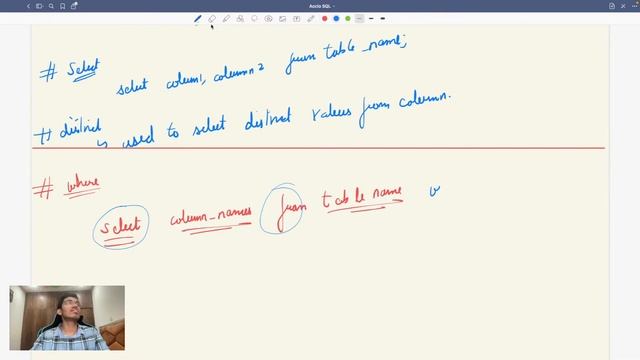 Aocio SQL
# Select
select colum1, column2 from table_name;
# distrit
is used to select distrit values from column.
# where
select column_names from table name w